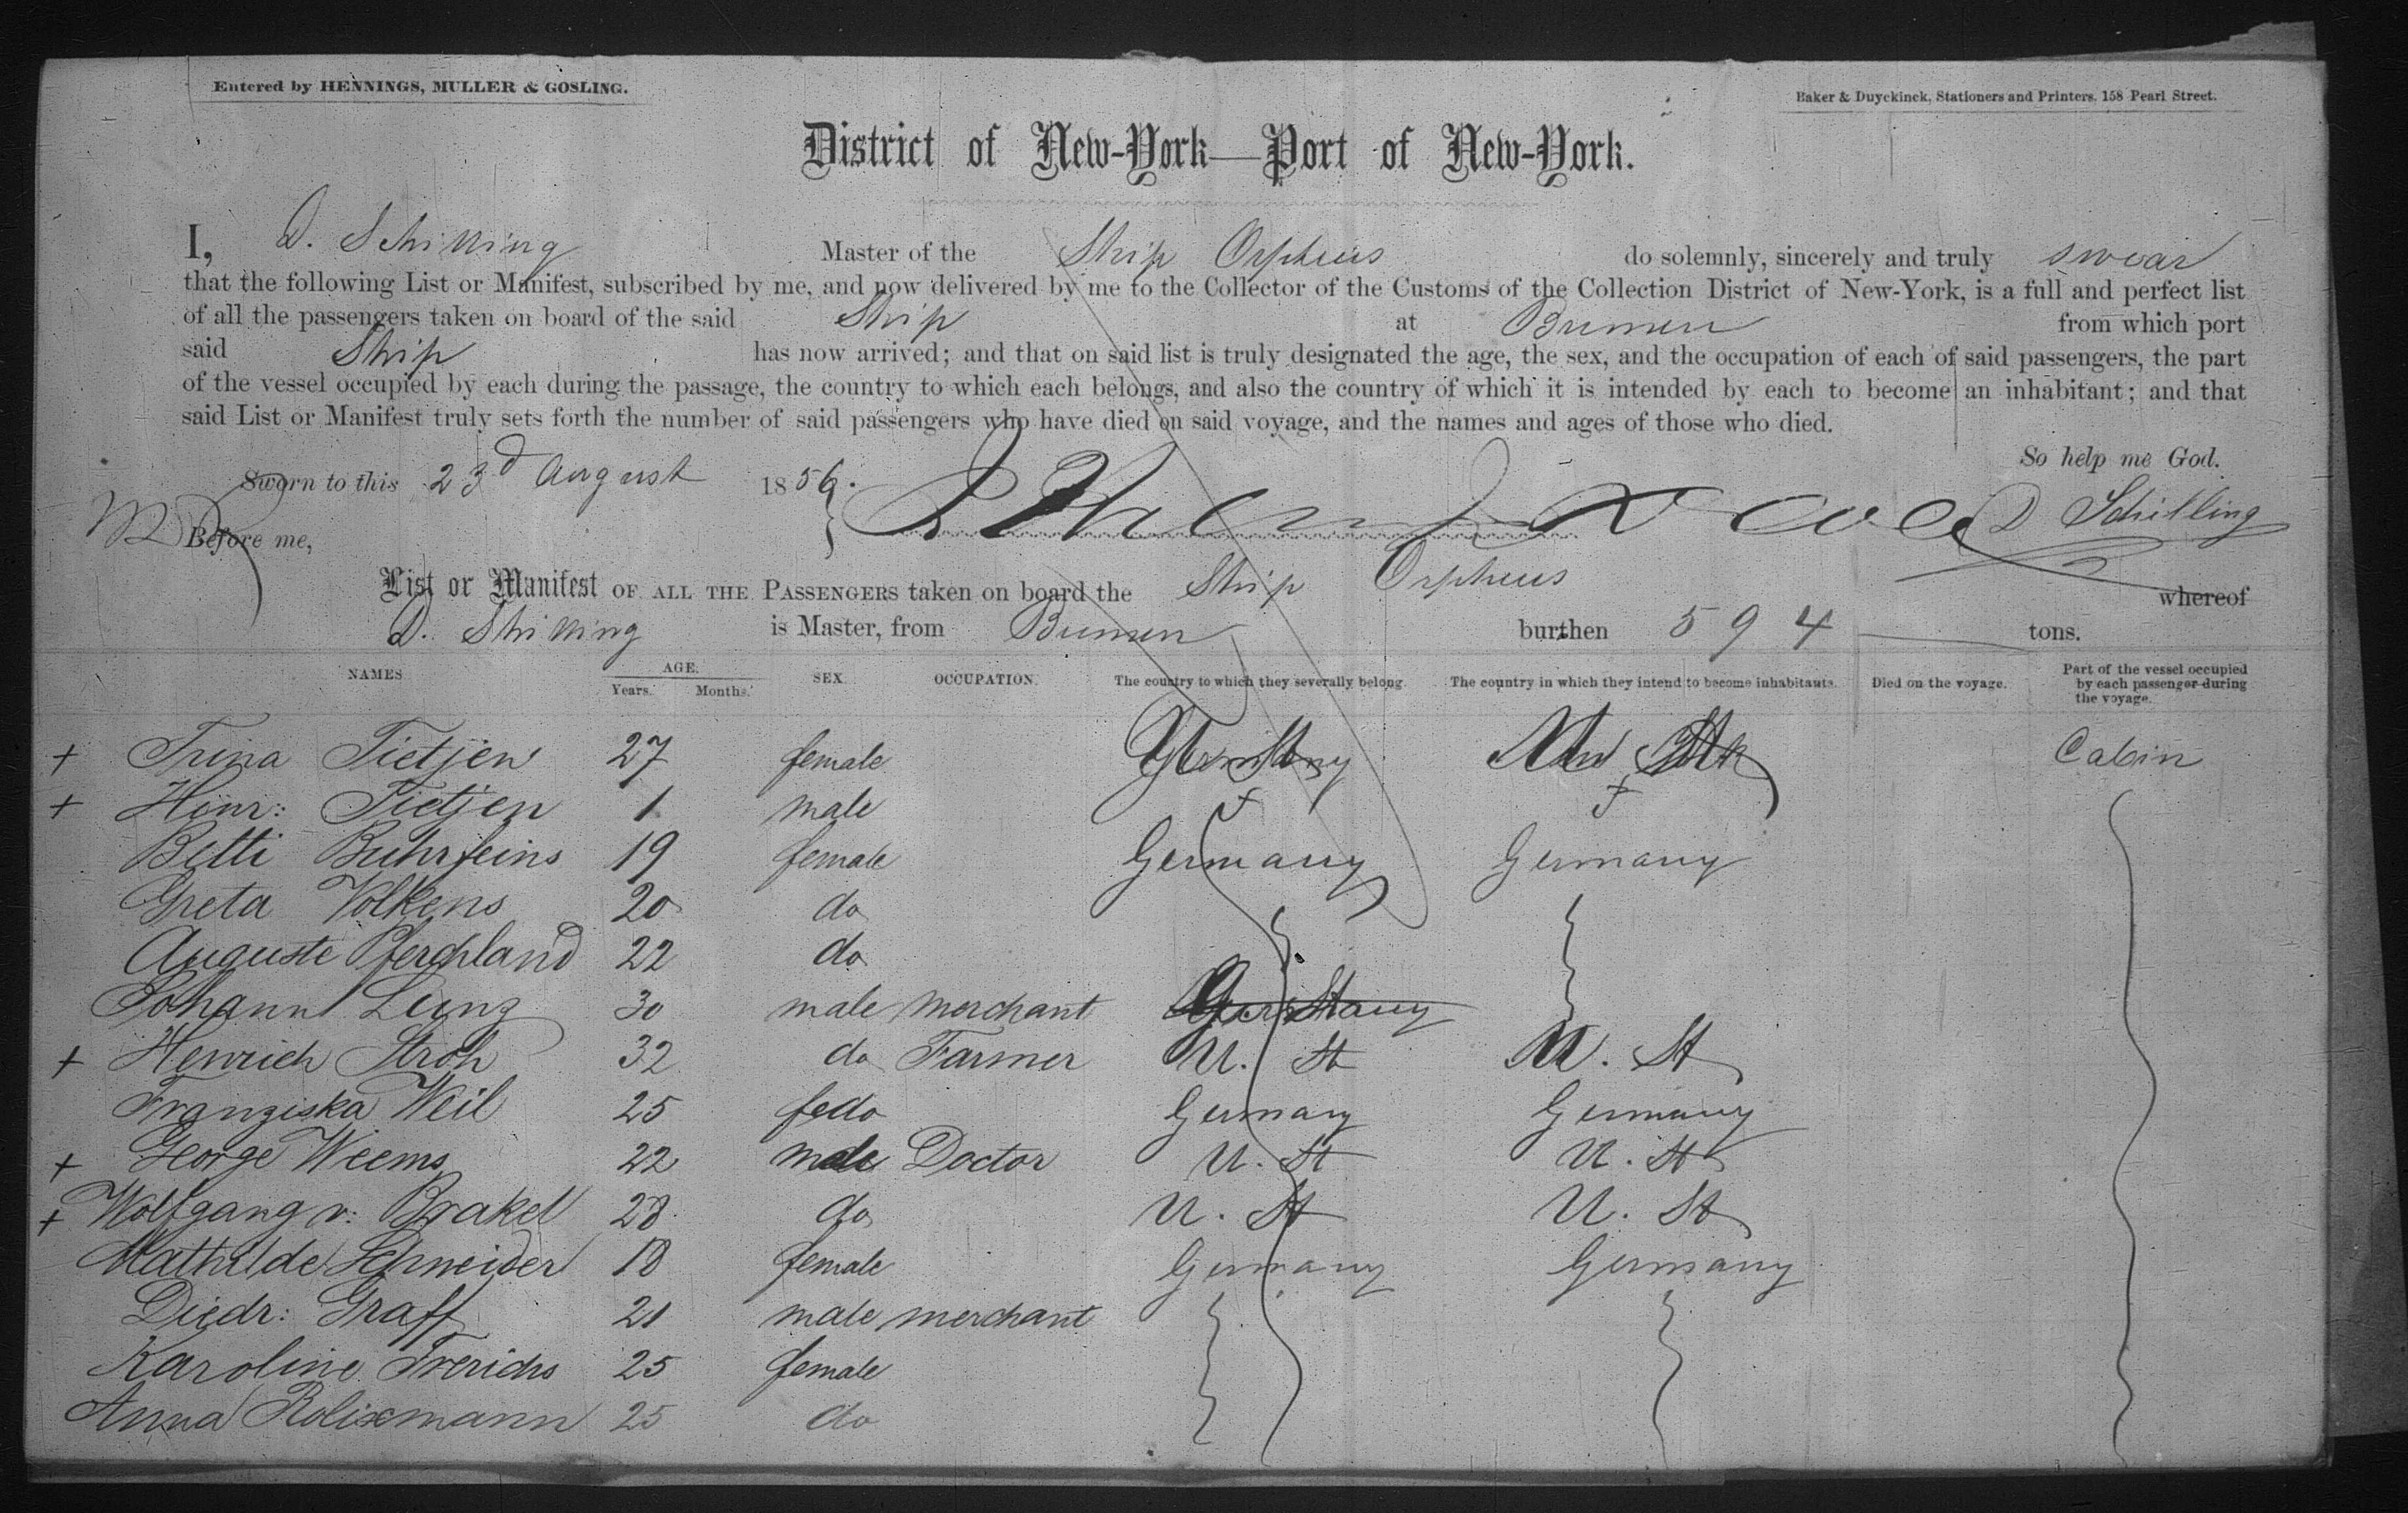 Entered by HENNINGS, MULLER & GOSLING.
Baker & Duyckinck, Stationers and Printers. 158 Pearl Street.
District of New-York—Port of New-York.
I, D. Schilling Master of the Ship Orpheus do solemnly, sincerely and truly swear
that the following List or Manifest, subscribed by me, and now delivered by me to the Collector of the Customs of the Collection District of New-York, is a full and perfect list
of all the passengers taken on board of the said Ship at Bremen from which port
said Ship has now arrived; and that on said list is truly designated the age, the sex, and the occupation of each of said passengers, the part
of the vessel occupied by each during the passage, the country to which each belongs, and also the country of which it is intended by each to become an inhabitant; and that
said List or Manifest truly sets forth the number of said passengers who have died on said voyage, and the names and ages of those who died.
So help me God.
Sworn to this 23d August 1856.
D Schilling
Before me,
List or Manifest OF ALL THE PASSENGERS taken on board the Ship Orpheus whereof
D. Schilling is Master, from Bremen burthen 594 tons.
NAMES AGE. Years. Months. SEX. OCCUPATION. The country to which they severally belong. The country in which they intend to become inhabitants. Died on the voyage. Part of the vessel occupied by each passenger during the voyage.
+ Trina Tietjen 27 female Cabin
+ Hinr: Tietjen 1 male
Betti Buhrfeins 19 female Germany Germany
Greta Volkens 20 do
Auguste Pferchland 22 do
Johann Lunz 30 male merchant
+ Henrich Stroh 32 do Farmer U. St U. St
Franziska Weil 25 fedo Germany Germany
+ George Weems 22 male Doctor U. St U. St
+ Wolfgang v: Brakel 28 do U. St U. St
Mathilde Schneider 18 female Germany Germany
Diedr: Graff 21 male merchant
Karoline Frerichs 25 female
Anna 25 do